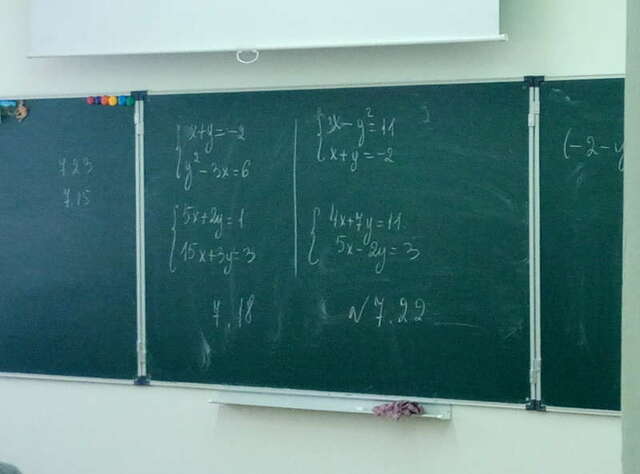 7.23
7.15
x+y=-2
y²-3x=6
5x+2y=1
15x+3y=3
7.18
3x-y²=11
x+y=-2
4x+7y=11
5x-2y=3
№7.22
(-2-y